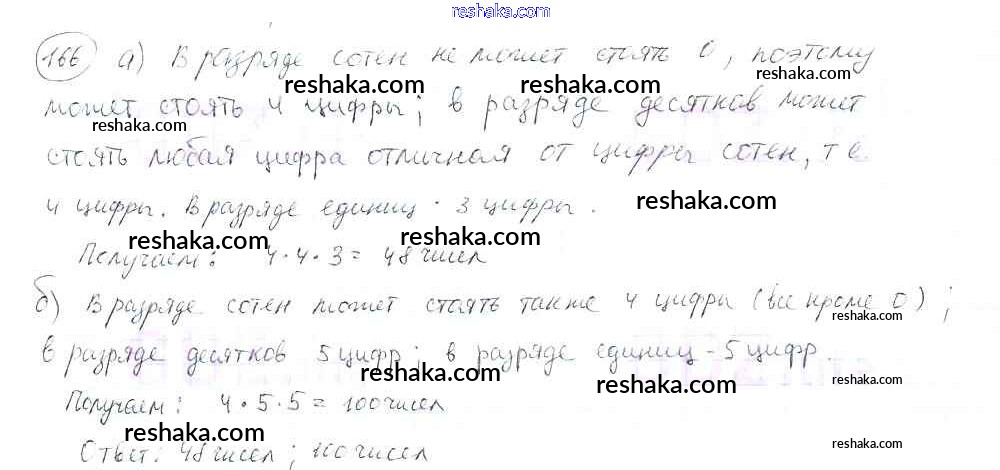 reshaka.com
166 а) В разряде сотен не может стоять 0, поэтому
reshaka.com reshaka.com
может стоять 4 цифры; в разряде десятков может
reshaka.com reshaka.com
стоять любая цифра отличная от цифры сотен, т е
4 цифры. В разряде единиц - 3 цифры. reshaka.com
reshaka.com reshaka.com
Получаем: 4·4·3 = 48 чисел
б) В разряде сотен может стоять также 4 цифры (все кроме 0);
reshaka.com
в разряде десятков 5 цифр; в разряде единиц - 5 цифр.
reshaka.com reshaka.com
Получаем: 4·5·5 = 100 чисел
reshaka.com reshaka.com
Ответ: 48 чисел; 100 чисел